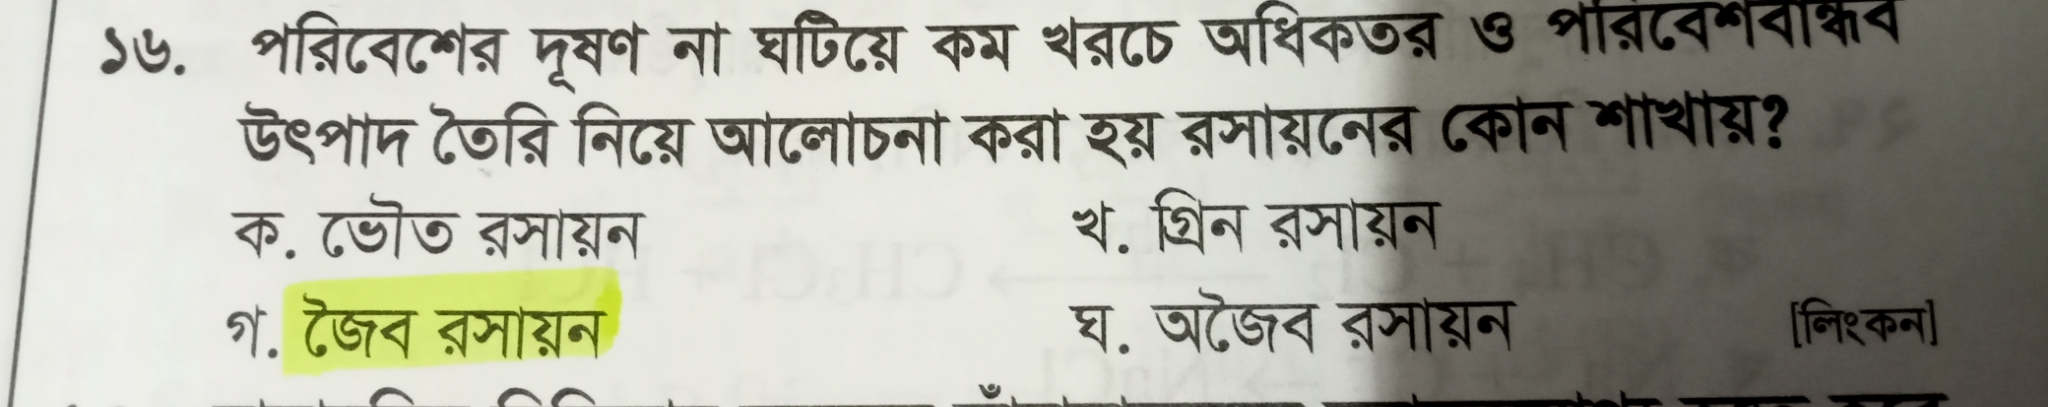 ১৬. পরিবেশের দূষণ না ঘটিয়ে কম খরচে অধিকতর ও পরিবেশবান্ধব
উৎপাদ তৈরি নিয়ে আলোচনা করা হয় রসায়নের কোন শাখায়?
ক. ভৌত রসায়ন খ. গ্রিন রসায়ন
গ. জৈব রসায়ন ঘ. অজৈব রসায়ন [লিংকন]